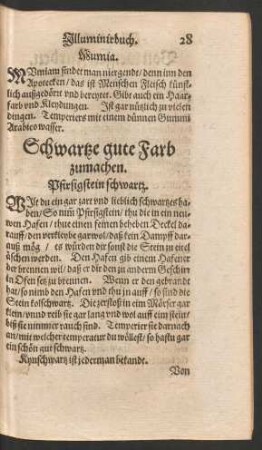 Illuminirbuch. 28
Mumia.
MUmiam findet man niergends/denn inn den
Apotecken/das ist Menschen Fleisch künst-
lich außgedört vnd bereytet. Gibt auch ein Haar-
farb vnd Kleydungen. Ist gar nützlich zu vielen
dingen. Temperiers mit einem dünnen Gummi
Arabico wasser.
Schwartze gute Farb
zumachen.
Pfirsigstein schwartz.
WIlt du ein gar zart vnd lieblich schwartzes ha-
ben/So nim̃ Pfirsigstein/thu die in ein neu-
wen Hafen/thue einen feinen beheben Deckel da-
rauff/den verkleybe gar wol/daß kein Dampff dar-
auß mög/es würden dir sonst die Stein zu eitel
äschen werden. Den Hafen gib einem Hafener
der brennen wil/daß er dir den zu anderm Geschirr
in Ofen setz zu brennen. Wenn er den gebrandt
hat/so nimb den Hafen vnd thu jn auff/so sind die
Stein kolschwartz. Die zerstoß in ein Mörser gar
klein/vnnd reib sie gar lang vnd wol auff eim stein/
biß sie nimmer rauch sind. Temperier sie darnach
an/mit welcher temperatur du wöllest/so hastu gar
ein schön gut schwartz.
Kynschwartz ist jederman bekandt.
Von